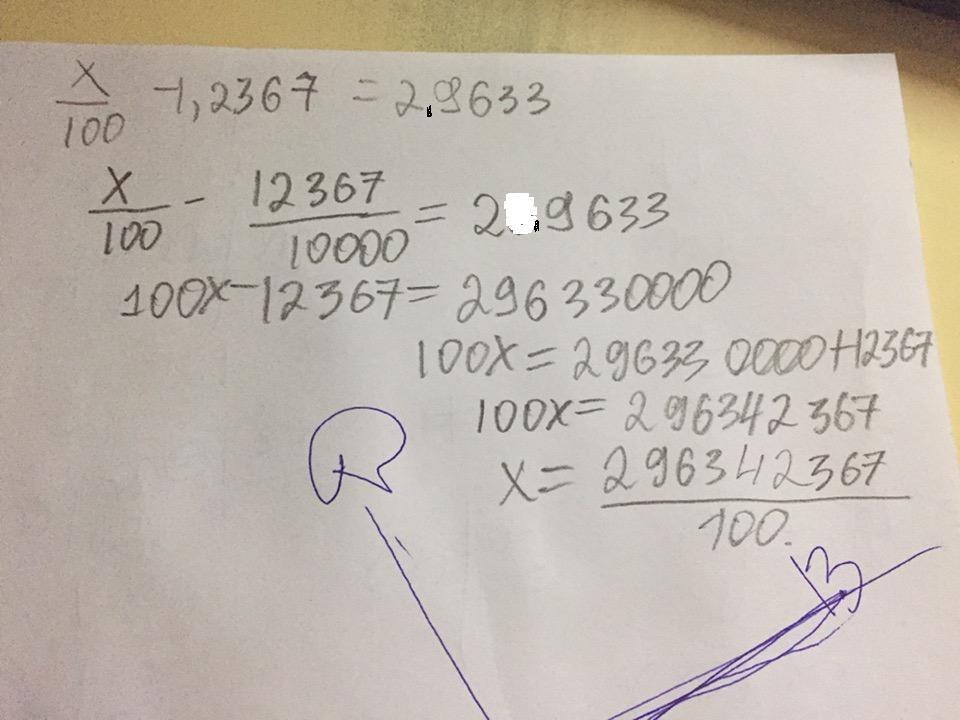 x/100 -1,2367 = 2,9633
x/100 - 12367/10000 = 2,9633
100x-12367=296330000
100x=296330000+12367
100x=296342367
x= 296342367/100.
B